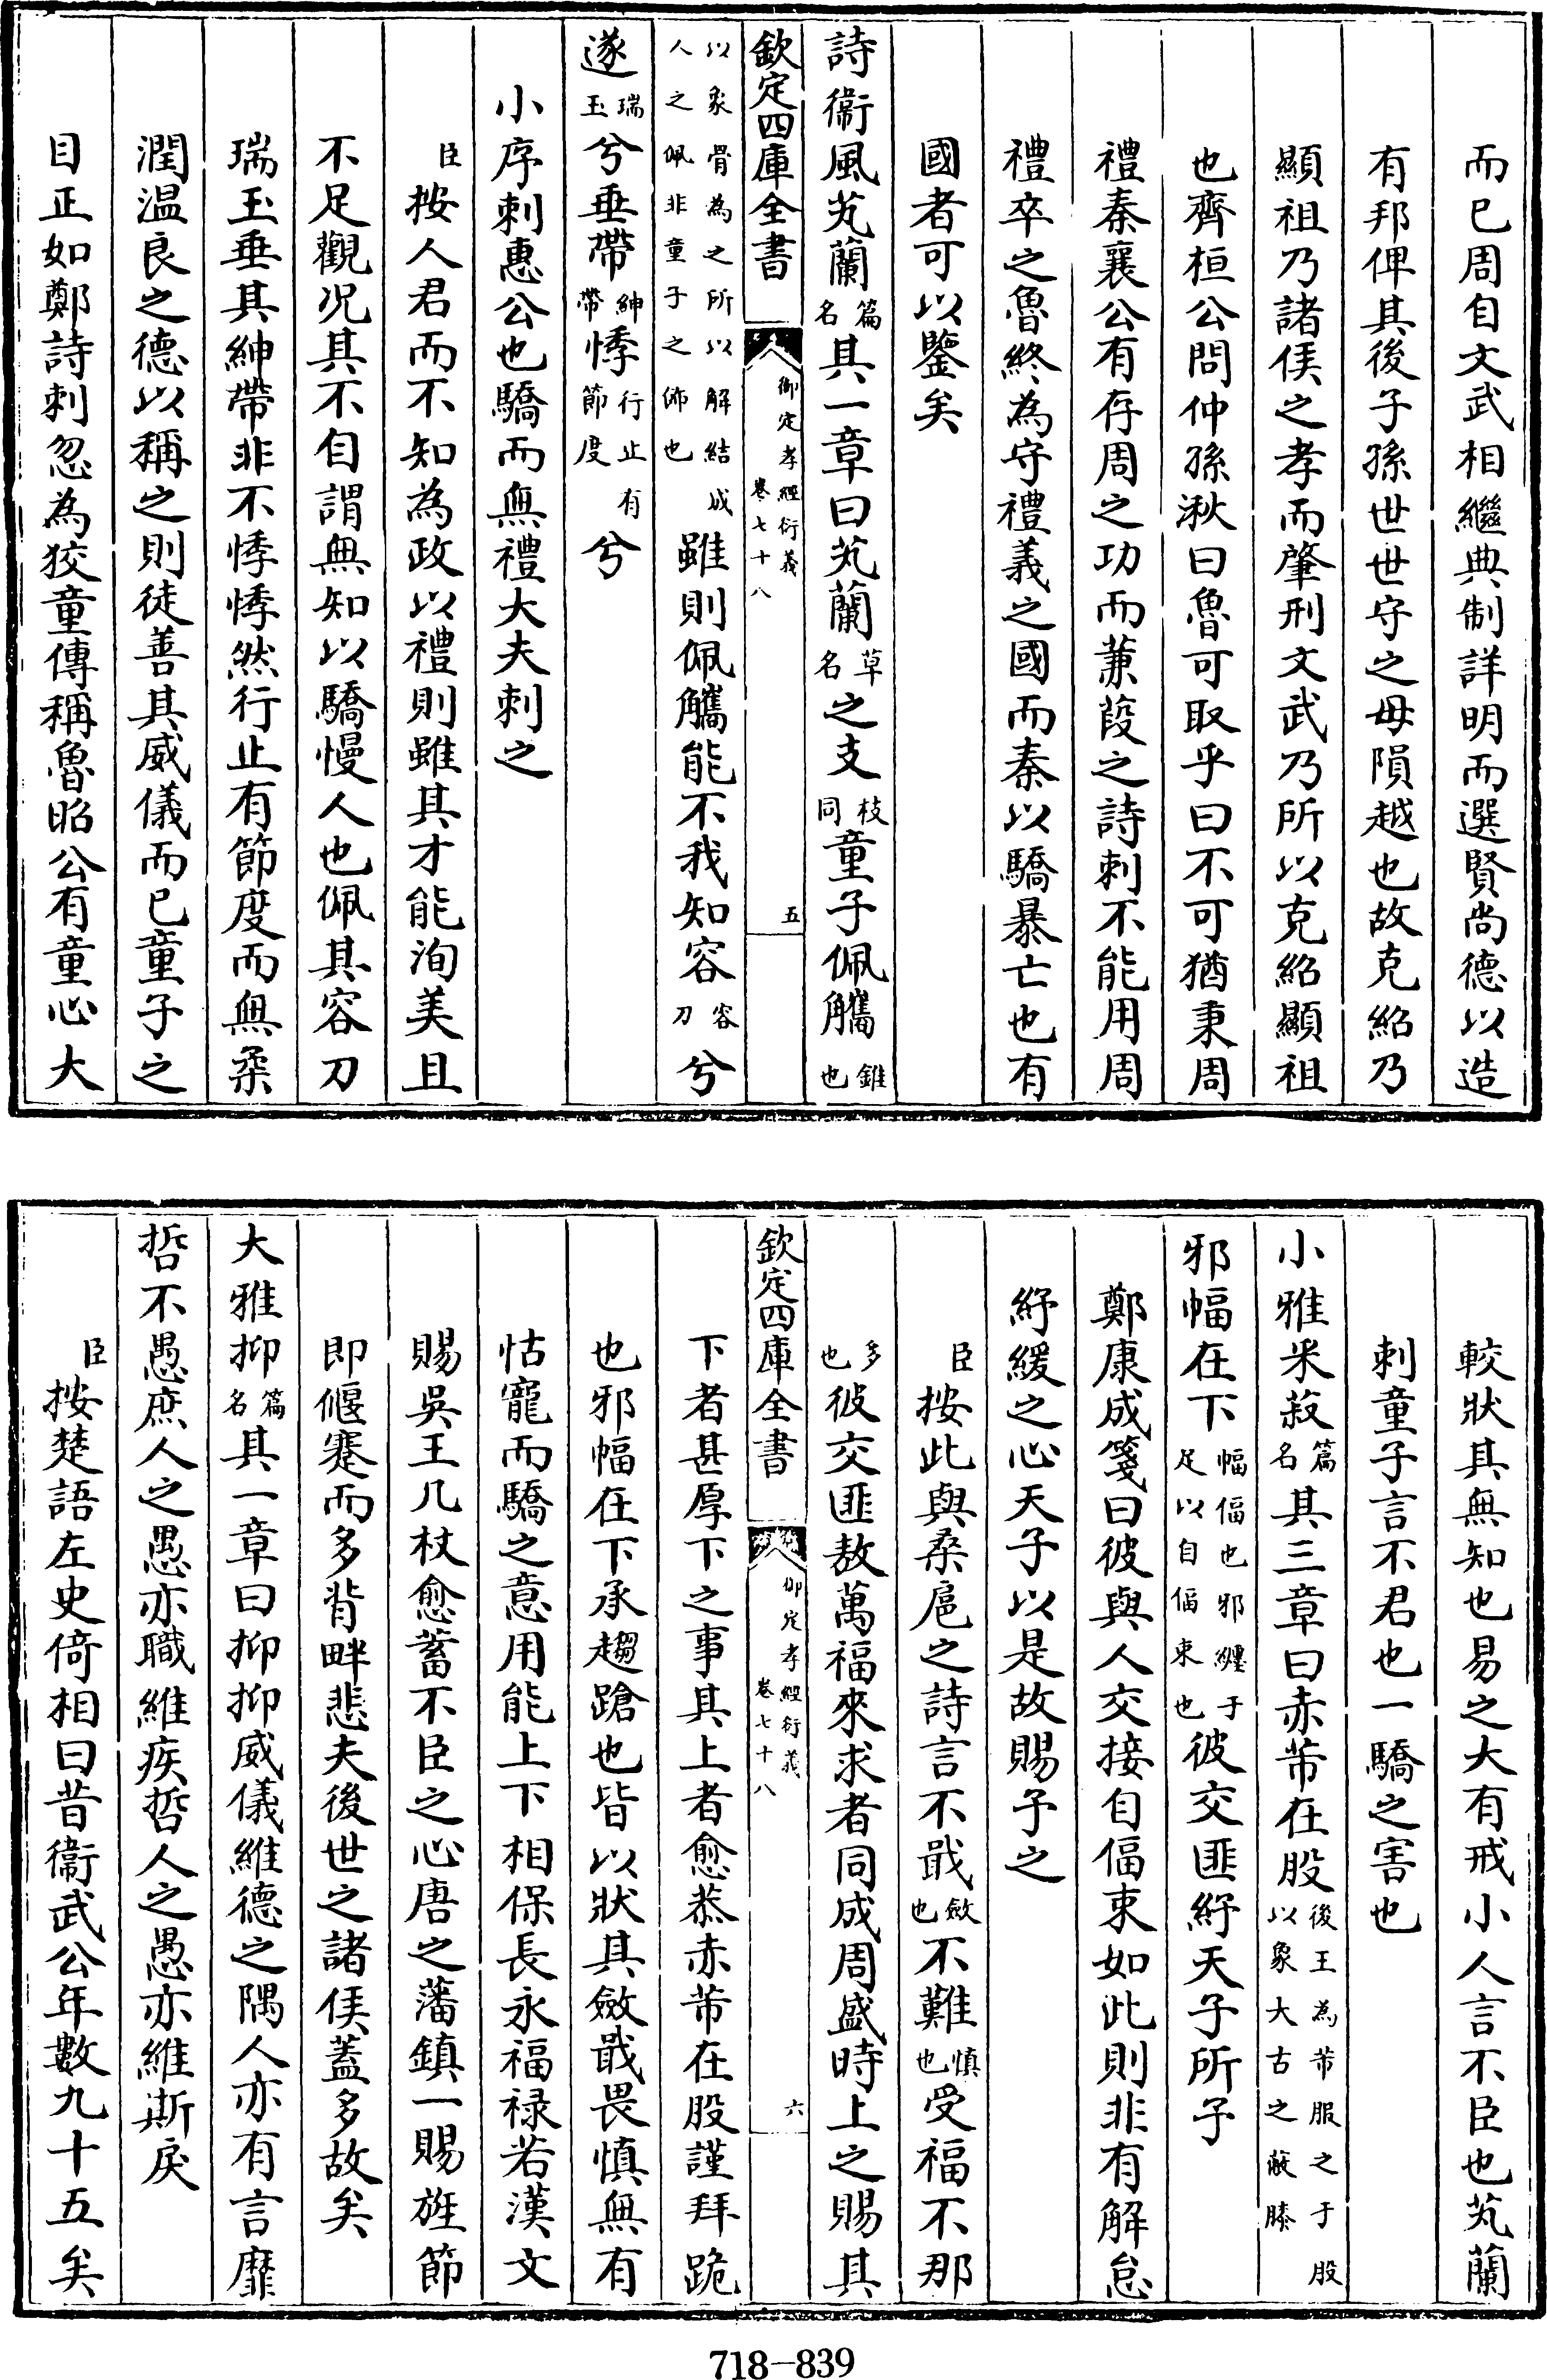 而已周自文武相繼典制詳明而選賢尚德以造
有邦俾其後子孫世世守之毋隕越也故克紹乃
顯祖乃諸侯之孝而肇刑文武乃所以克紹顯祖
也齊桓公問仲孫湫曰魯可取乎曰不可猶秉周
禮秦襄公有存周之功而蒹葭之詩刺不能用周
禮卒之魯終為守禮義之國而秦以驕暴亡也有
國者可以鑒矣
詩衞風芄蘭篇名其一章曰芄蘭草名之支枝同童子佩觿錐也
欽定四庫全書 御定孝經衍義 卷七十八 五
以象骨為之所以解結成人之佩非童子之飾也雖則佩觿能不我知容容刀兮
遂瑞玉兮垂帶紳帶悸行止有節度兮
小序刺惠公也驕而無禮大夫刺之
臣按人君而不知為政以禮則雖其才能洵美且
不足觀况其不自謂無知以驕慢人也佩其容刀
瑞玉垂其紳帶非不悸悸然行止有節度而無柔
潤温良之德以稱之則徒善其威儀而已童子之
目正如鄭詩刺忽為狡童傳稱魯昭公有童心大
較狀其無知也易之大有戒小人言不臣也芄蘭
刺童子言不君也一驕之害也
小雅米菽篇名其三章曰赤芾在股後王為芾服之于股以象大古之蔽膝
邪幅在下幅偪也邪纏于足以自偪束也彼交匪紓天子所予
鄭康成箋曰彼與人交接自偪束如此則非有解怠
紓緩之心天子以是故賜予之
臣按此與桑扈之詩言不戢斂也不難慎也受福不那
多也彼交匪敖萬福來求者同成周盛時上之賜其
欽定四庫全書 御定孝經衍義 卷七十八 六
下者甚厚下之事其上者愈恭赤芾在股謹拜跪
也邪幅在下承趨蹌也皆以狀其斂戢畏慎無有
怙寵而驕之意用能上下相保長永福禄若漢文
賜吳王几杖愈蓄不臣之心唐之藩鎮一賜旌節
即偃蹇而多背畔悲夫後世之諸侯蓋多故矣
大雅抑篇名其一章曰抑抑威儀維德之隅人亦有言靡
哲不愚庶人之愚亦職維疾哲人之愚亦維斯戾
臣按楚語左史倚相曰昔衞武公年數九十五矣
718-839